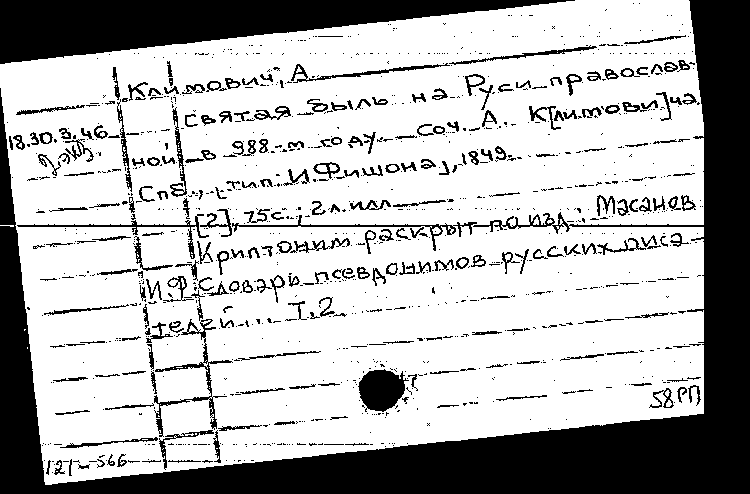 Климович, А.
18.30.3.46
Святая быль на Руси православ-
2 экз.
ной в 988-м году. Соч. А. К[лимови]ча
Спб., тип. И. Фишона, 1849.
[2], 75с.; 2 л. илл.
Криптоним раскрыт по изд.: Масанов
И.Ф. Словарь псевдонимов русских писа-
телей... Т.2.
58РП
121-566